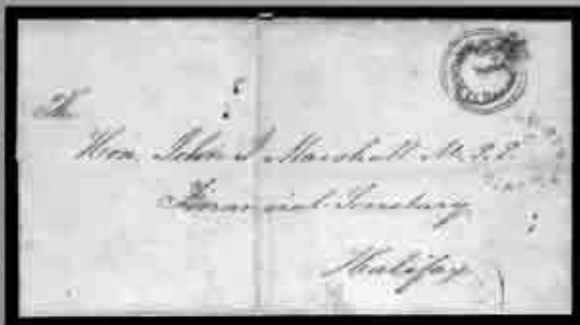 The
Hon. John J. Marshall M.P.P.
Financial Secretary
Halifax